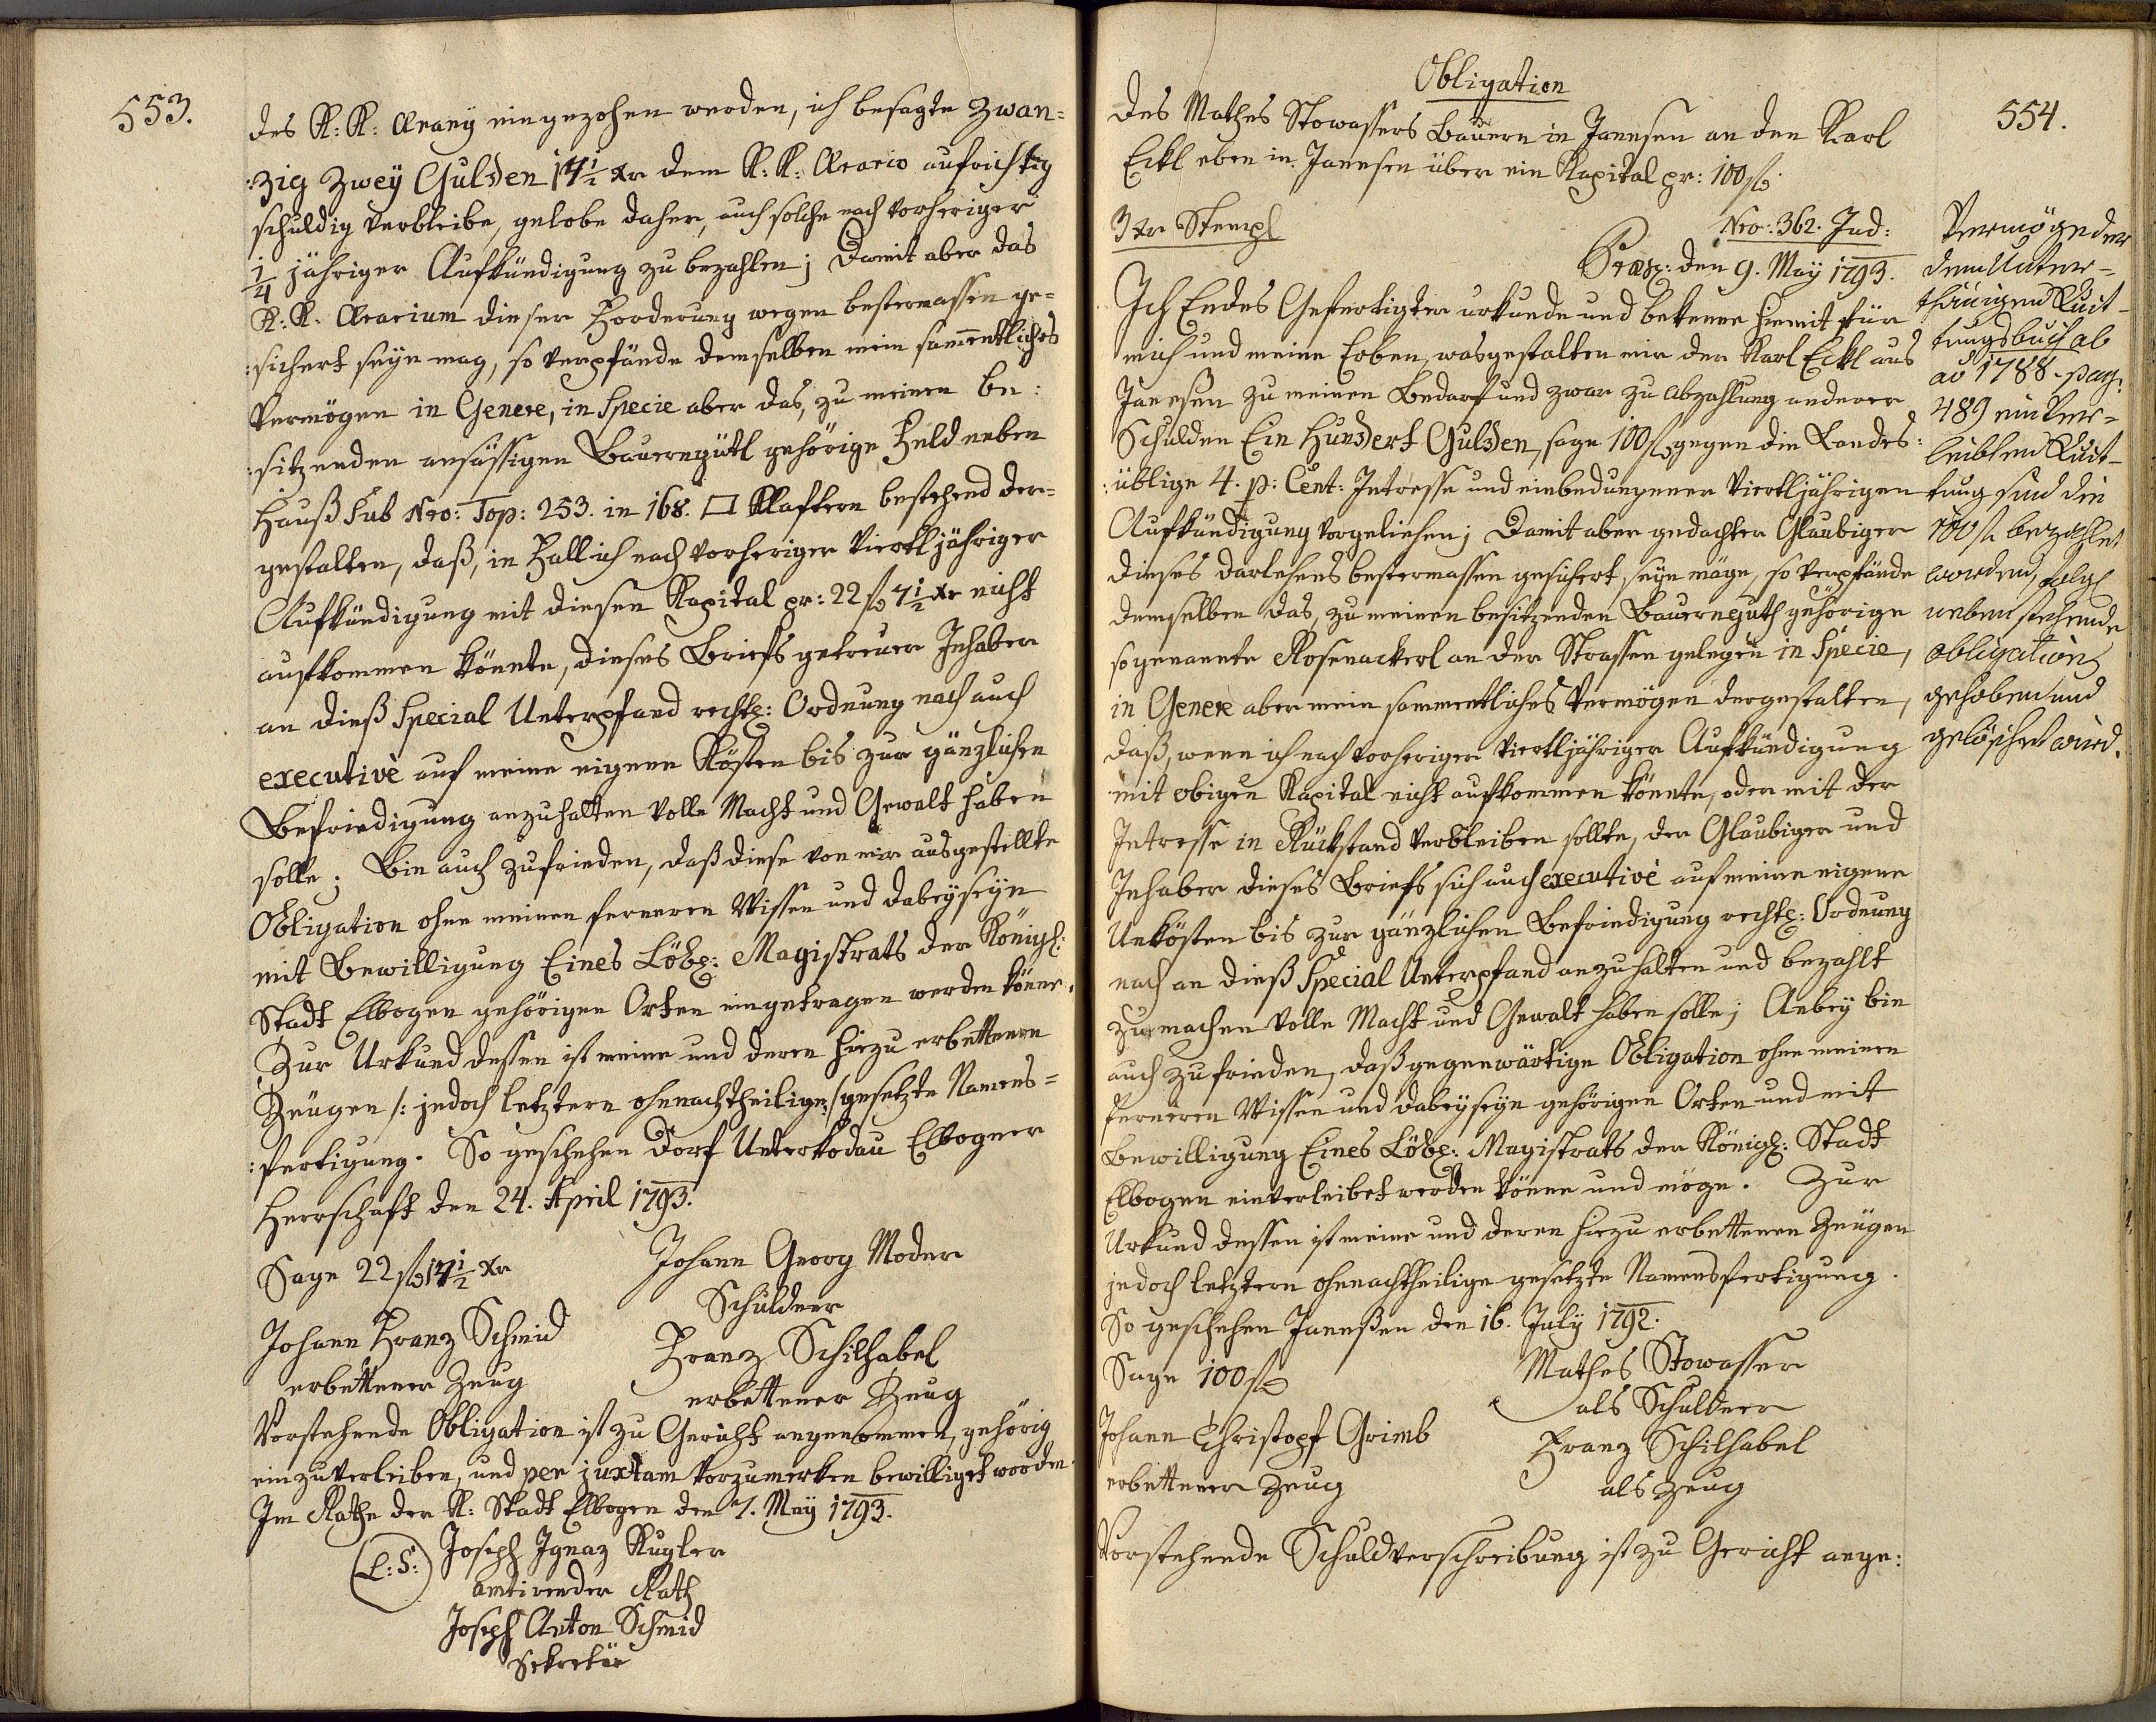 553.
des K: K: Aerarÿ eingezohen werden, ich besagte Zwan=
:zig Zweÿ Gulden 14 1/2 xr dem K: K: Aerario aufrichtig
schuldig verbleibe, gelobe daher, auch solche nach vorheriger
1/4 jähriger Aufkündigung zu bezahlen; Damit aber das
K: K: Aerarium dieser Forderung wegen bestermassen ge=
:sichert seÿn mag, so verpfände demselben mein sam̄entliches
Vermögen in Genere, in Specie aber das, zu meinen be:
:sitzenden ansässigen Bauerngütl gehörige Feld neben
Hauß sub Nro: Top: 253. in 168. □ Klaftern bestehend der=
gestalten, daß, in Fall ich nach vorheriger Viertljähriger
Aufkündigung mit diesen Kapital pr: 22 f 14 1/2 xr nicht
aufkommen könnte, dieses Briefs getreuer Inhaber
an dieß Special Unterpfand rechtl: Ordnung nach auch
executivè auf meine eigene Kösten bis zur gänzlichen
Befriedigung anzuhalten volle Macht und Gewalt haben
solle; Bin auch zufrieden, daß diese von mir ausgestellte
Obligation ohne meinen ferneren Wissen und dabeÿseÿn
mit Bewilligung Eines Löbl: Magistrats der Königl:
Stadt Elbogen gehörigen Orten eingetragen werden könne.
Zur Urkund dessen ist meine und deren hiezu erbettenen
Zeugen /: jedoch letztern ohnnachtheilige :/ gesetzte Namens=
:fertigung. So geschehen Dorf Unterkodau Elbogner
Herrschaft den 24. April 1793.
Sage 22 f 14 1/2 xr
Johann Georg Moder
Schuldner
Johann Franz Schmid
erbettener Zeug
Franz Schilhabel
erbettener Zeug
Vorstehende Obligation ist zu Gericht angenommen, gehörig
einzuverleiben, und per juxtam vorzumerken bewilliget worden.
Im Rathe der K: Stadt Elbogen den 7. Maÿ 1793.
(L: S:)
Joseph Ignaz Kugler
amtirender Rath
Joseph Anton Schmid
Sekretär
554.
Obligation
Des Mathes Stowassers Bauern in Janesen an den Karl
Eckl eben in Janesen über ein Kapital pr: 100 f
3 xr Stempl
Nro: 362. Jud:
Præs: den 9. Maÿ 1793.
Ich Endes Gefertigter urkunde und bekenne hiemit für
mich und meine Erben, wasgestalten mir der Karl Eckl aus
Janesen zu meinen Bedarf und zwar zu Abzahlung anderer
Schulden Ein Hundert Gulden, sage 100 f gegen die Landes:
:übliche 4. p: Cent: Intresse und einbedungener Viertljährigen
Aufkündigung vorgeliehen; Damit aber gedachter Glaubiger
dieses darlehens bestermassen gesichert seÿn möge, so verpfände
demselben das, zu meinen besitzenden Bauernguth gehörige
sogenannte Rosenackerl an der Strassen gelegen in Specie,
in Genere aber mein sammentliches Vermögen dergestalten,
daß, wenn ich nach vorheriger Viertljähriger Aufkündigung
mit obigen Kapital nicht aufkommen könnte, oder mit der
Intresse in Rückstand verbleiben sollte, der Glaubiger und
Inhaber dieses Briefs sich auch executivè auf meine eigene
Unkösten bis zur gänzlichen Befriedigung rechtl: Ordnung
nach an dieß Special Unterpfand anzuhalten und bezahlt
zu machen volle Macht und Gewalt haben solle; Anbeÿ bin
auch zufrieden, daß gegenwärtige Obligation ohne meinen
ferneren Wissen und dabeÿseÿn gehörigen Orten und mit
Bewilligung Eines Löbl: Magistrats der Königl: Stadt
Elbogen einverleibet werden könne und möge. Zur
Urkund dessen ist meine und deren hiezu erbettenen Zeugen
jedoch letztern ohnnachtheilige gesetzte Namensfertigung.
So geschehen Janeßen den 16. Julÿ 1792.
Sage 100 f
Mathes Stowasser
als Schuldner
Johann Christoph Grimb
erbettener Zeug
Franz Schilhabel
als Zeug
Vorstehende Schuldverschreibung ist zu Gericht ange:
Vermöge der
dem Unter=
thänigen Quit=
tungsbuch ab
ao 1788. pag:
489 einver=
leibten Quit=
tung sind die
100 f bezahlet
worden, folgl
neben stehende
Obligation
gehoben und
gelöschet wird.